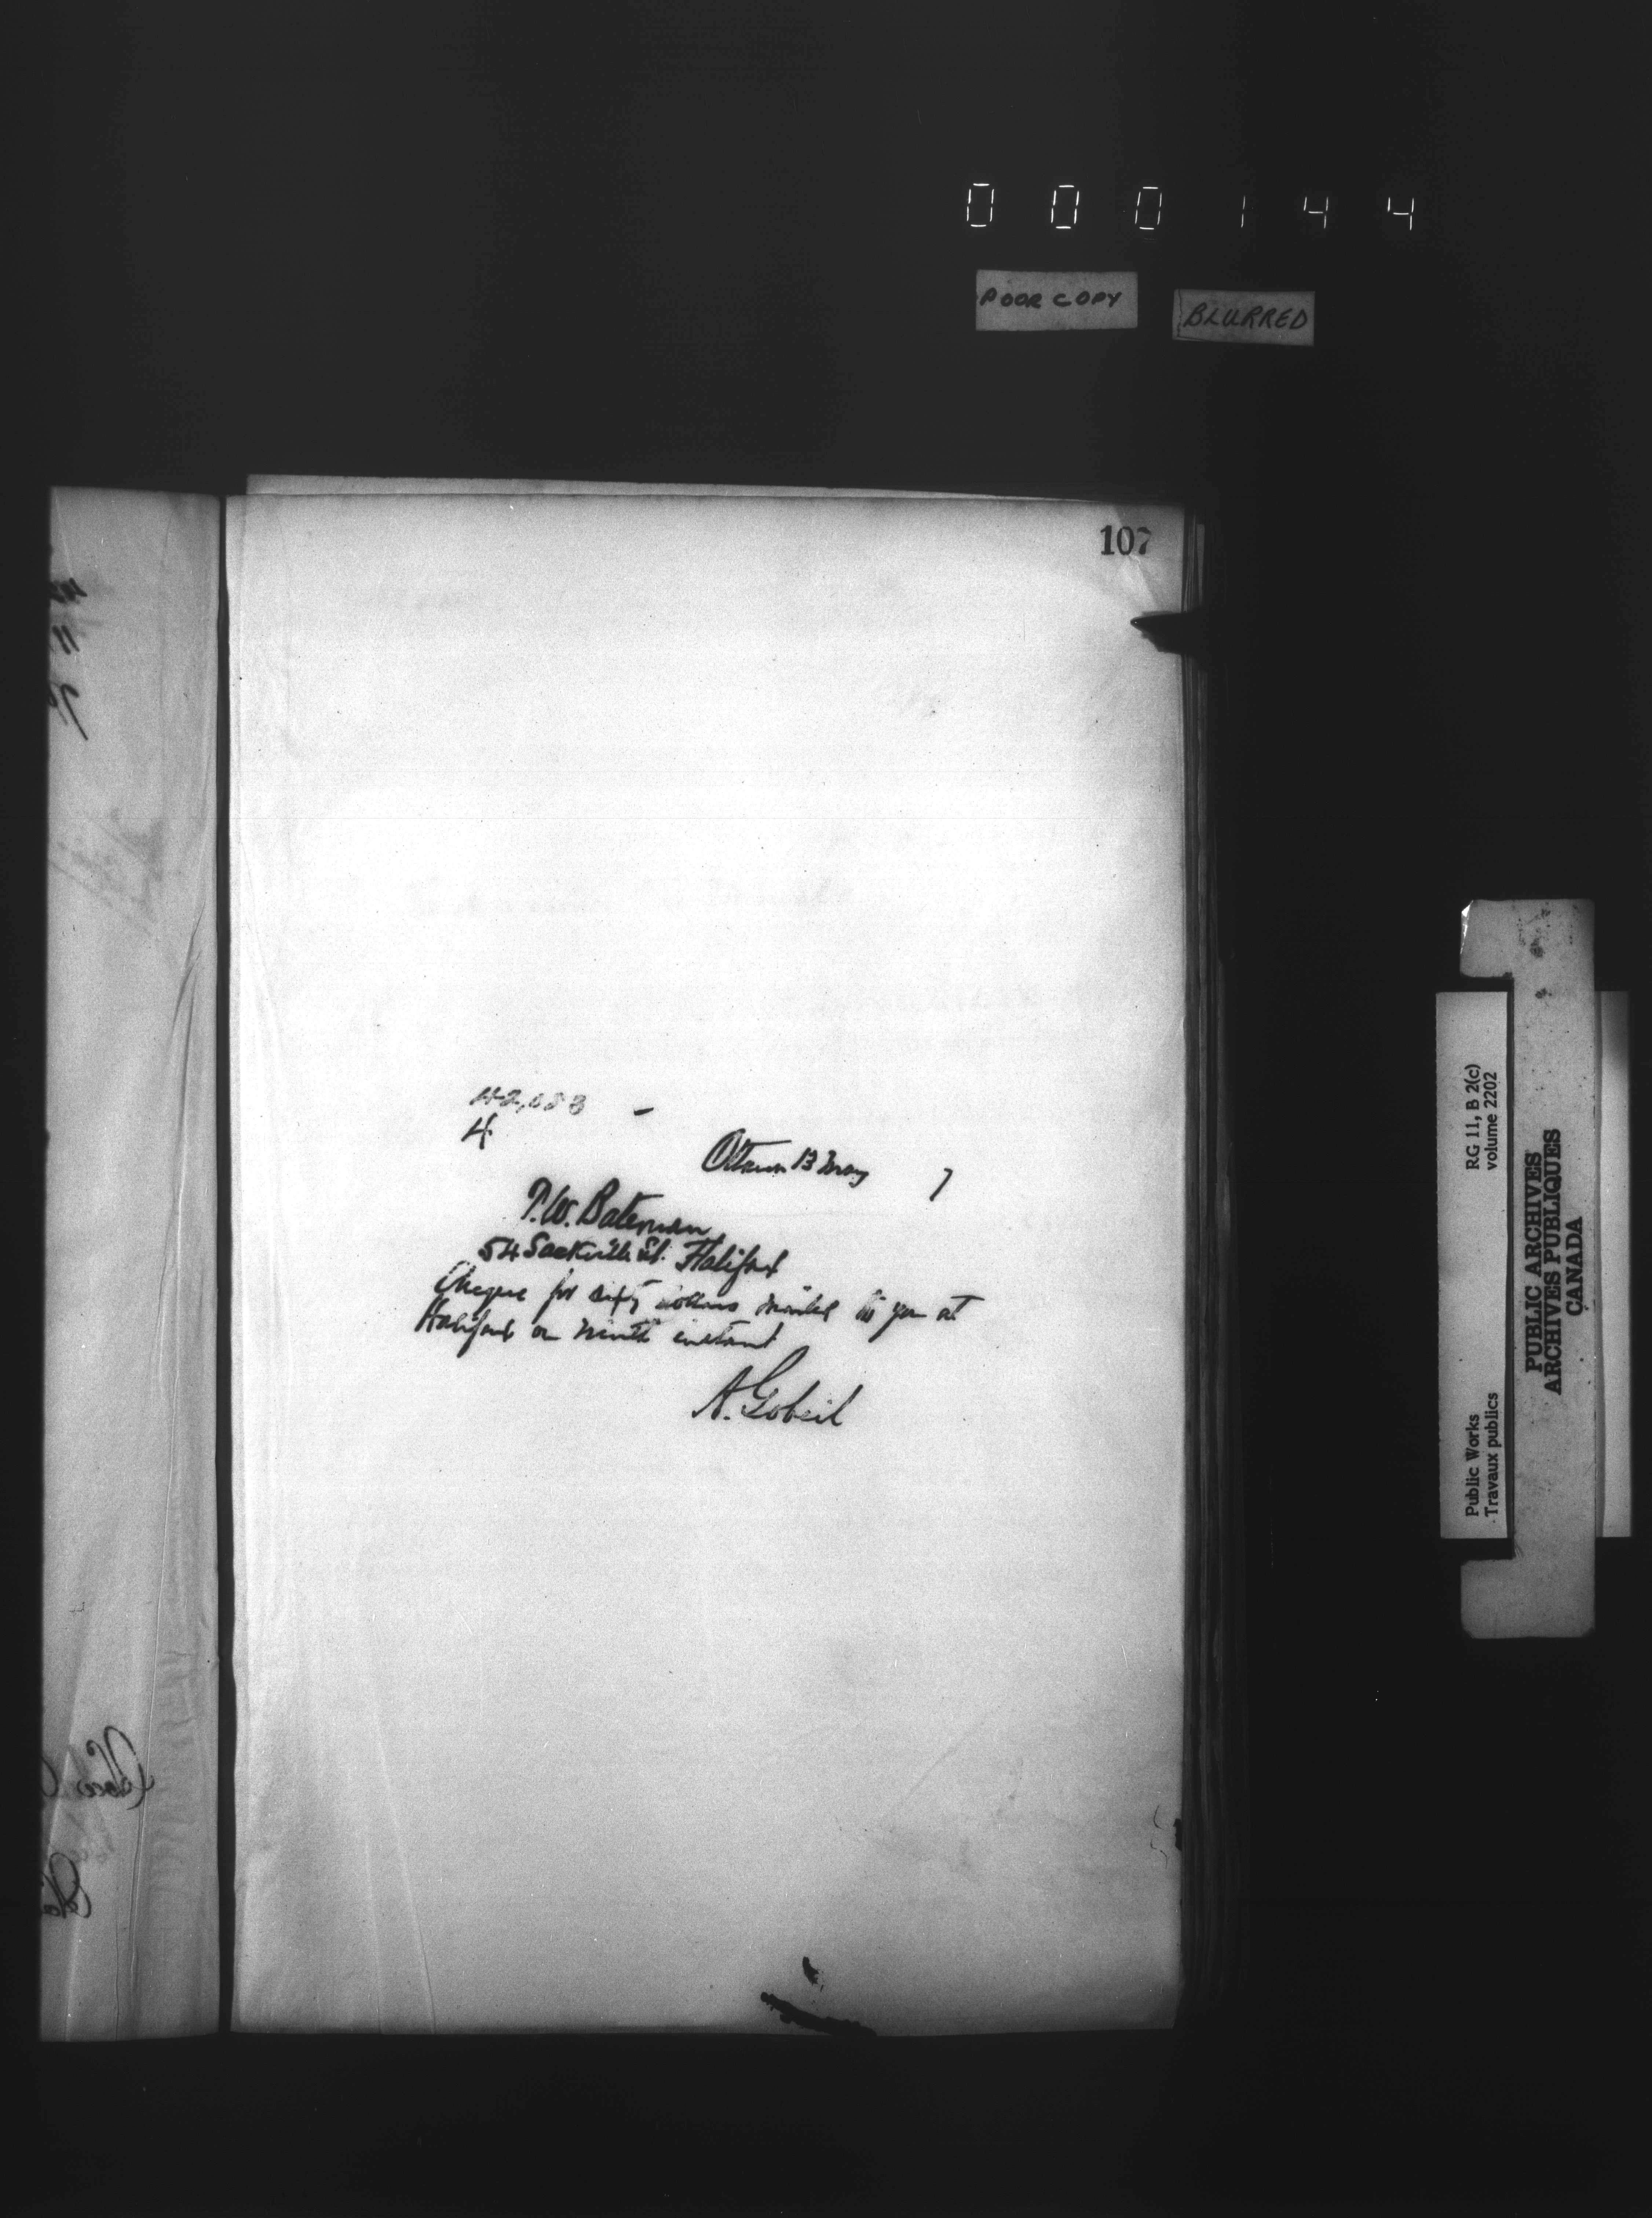 000144
POOR COPY
BLURRED
107
42,088
4
Ottawa 13 May 7
P.W. Bateman
54 Sackville St. Halifax
Cheque for sixty dollars mailed to you at
Halifax on ninth instant
A. Gobeil
RG 11, B 2(c)
volume 2202
Public Works
Travaux publics
PUBLIC ARCHIVES
ARCHIVES PUBLIQUES
CANADA